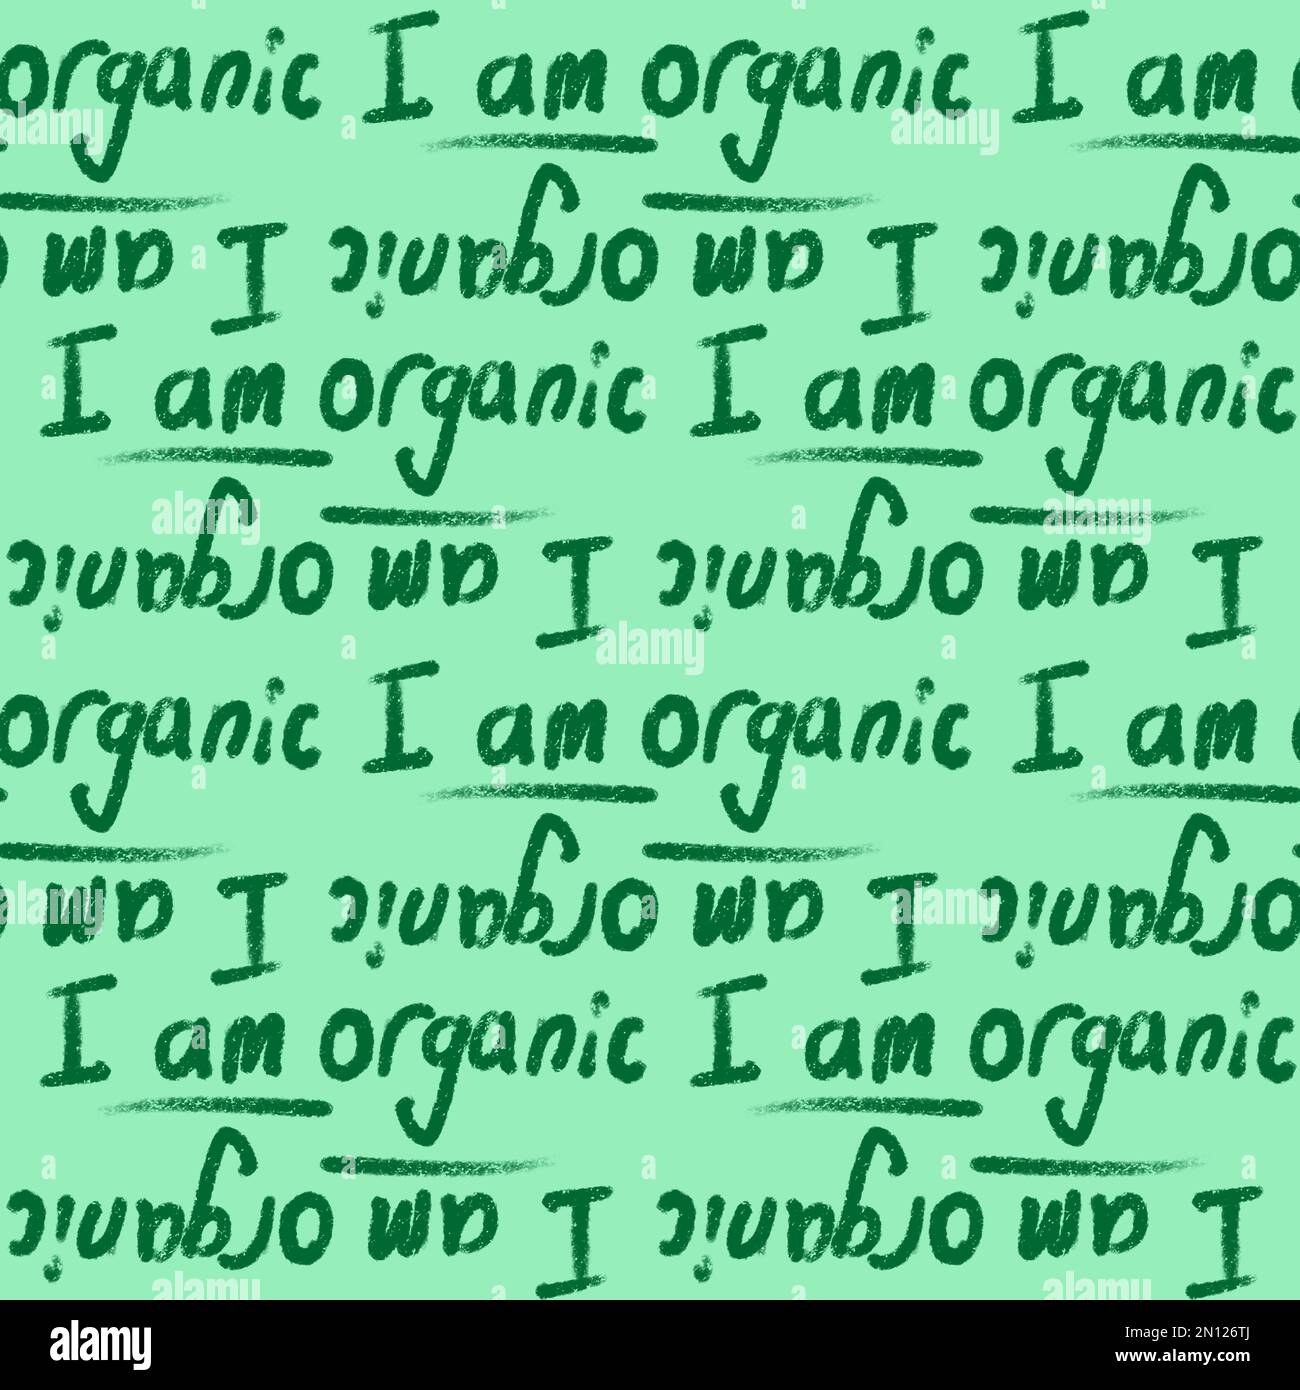 organic I am organic I am
am I organic am I organic
I am organic I am organic
organic am I organic am I
organic I am organic I am
am I organic am I organic
I am organic I am organic
organic am I organic am I
alamy
Image ID: 2N126TJ
www.alamy.com